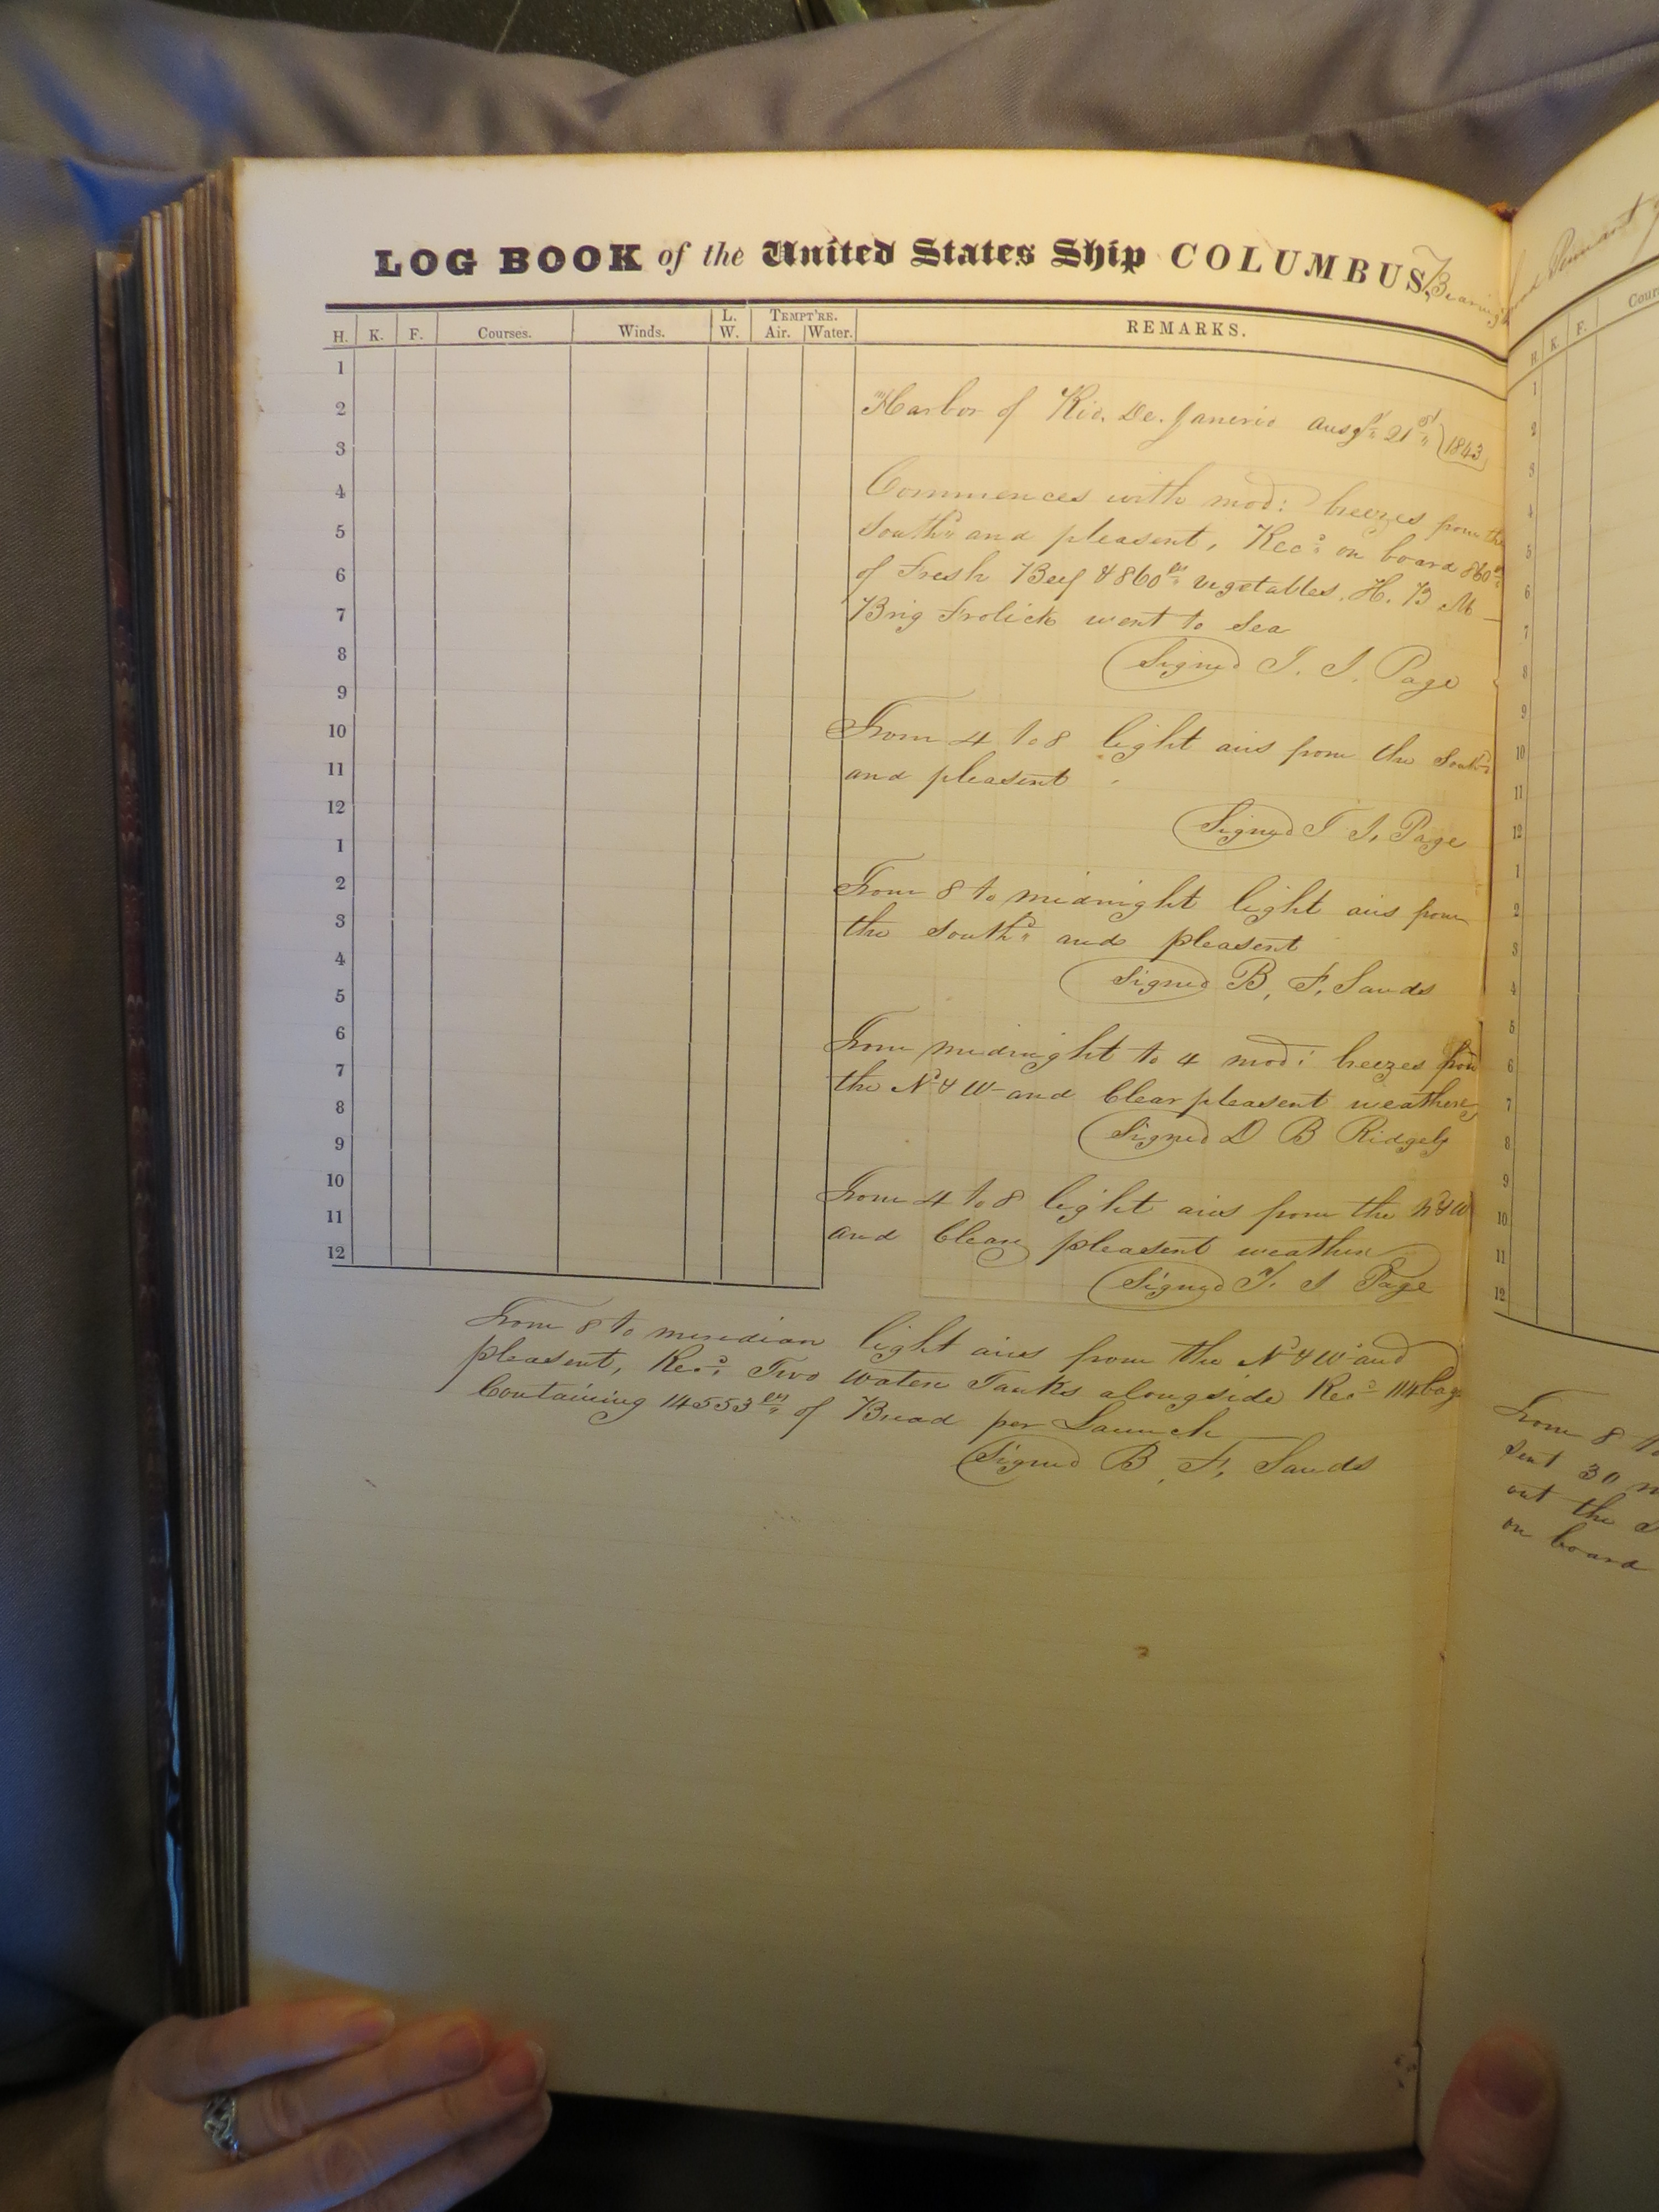 LOG BOOK of the United States Ship COLUMBUS, Bearing
H. K. F. Courses. Winds. L. W. TEMPT'RE. Air. Water. REMARKS.
1
2
3
4
5
6
7
8
9
10
11
12
1
2
3
4
5
6
7
8
9
10
11
12
Harbor of Rio. De. Janerio Ausgt 21st 1843
Commences with mod: breezes from the
southd and pleasent, Recd on board 860lbs
of Fresh Beef & 860lbs vegetables. H. B M
Brig Frolick went to sea
Signed T. J. Page
From 4 to 8 light airs from the southd
and pleasent
Signed T J. Page
From 8 to midnight light airs from
the southd and pleasent
Signed B. F. Sands
From midnight to 4 mod: breezes from
the Nd & W and Clear pleasent weather
Signed D B Ridgely
From 4 to 8 light airs from the Nd & W
and Clear pleasent weather
Signed T. J Page
From 8 to meridian light airs from the Nd & W and
pleasent, Recd Two Water Tanks alongside Recd 114 bags
Containing 14553lbs of Bread per Launch
Signed B. F. Sands
Pennant
H. K. F. Cour
1
2
3
4
5
6
7
8
9
10
11
12
1
2
3
4
5
6
7
8
9
10
11
12
From 8 to
sent 30
out the
on board